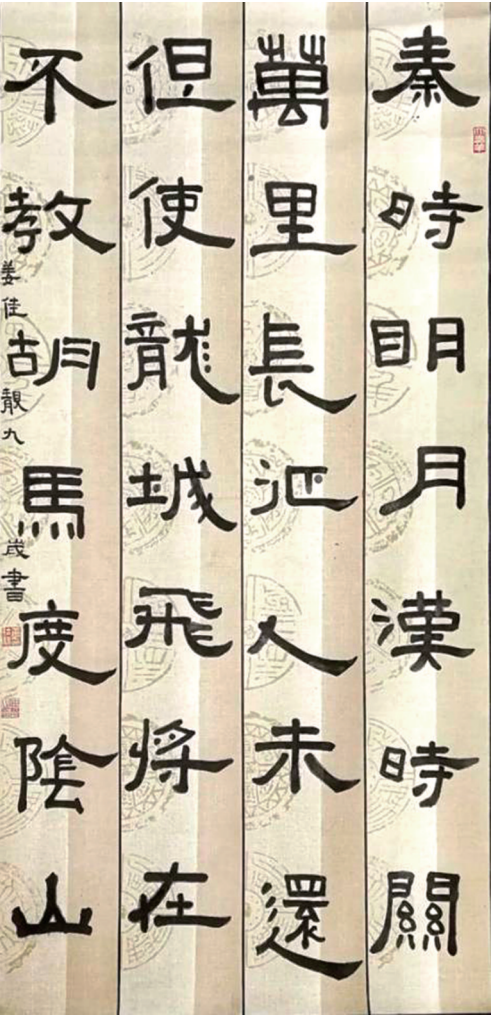 秦時眀月漢時關
萬里長征人未還
但使龍城飛將在
不教胡馬度陰山
姜佳靚九歲書